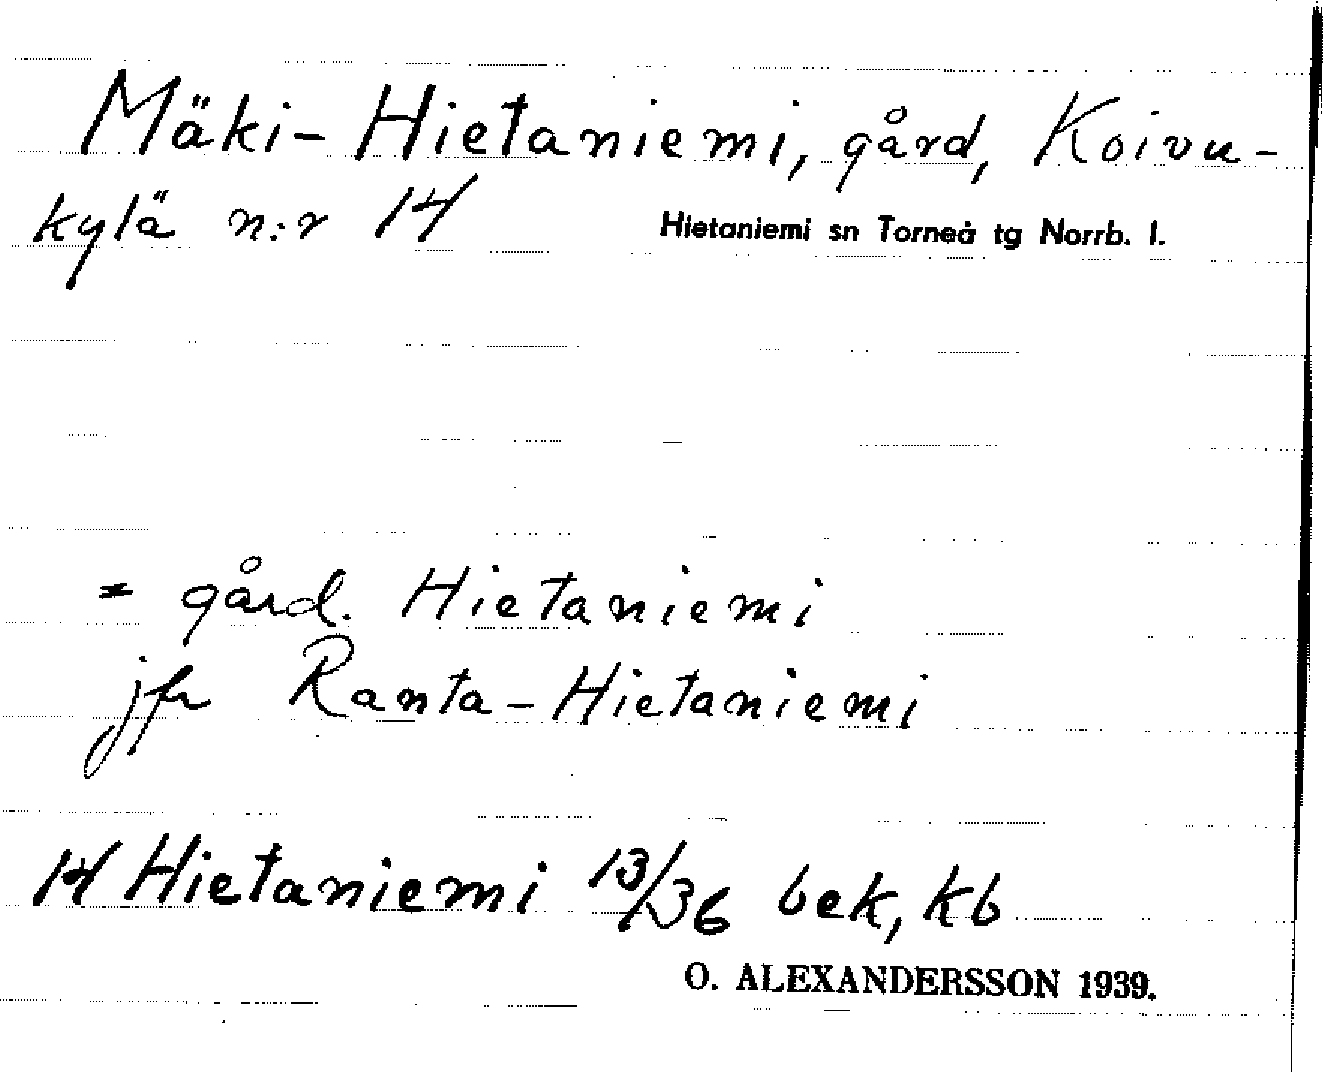 Mäki-Hietaniemi, gård, Koivu-
kylä n:r 14
Hietaniemi sn Torneå tg Norrb. l.
= gård. Hietaniemi
jfr Ranta-Hietaniemi
14 Hietaniemi 13/36 bek, kb
O. ALEXANDERSSON 1939.